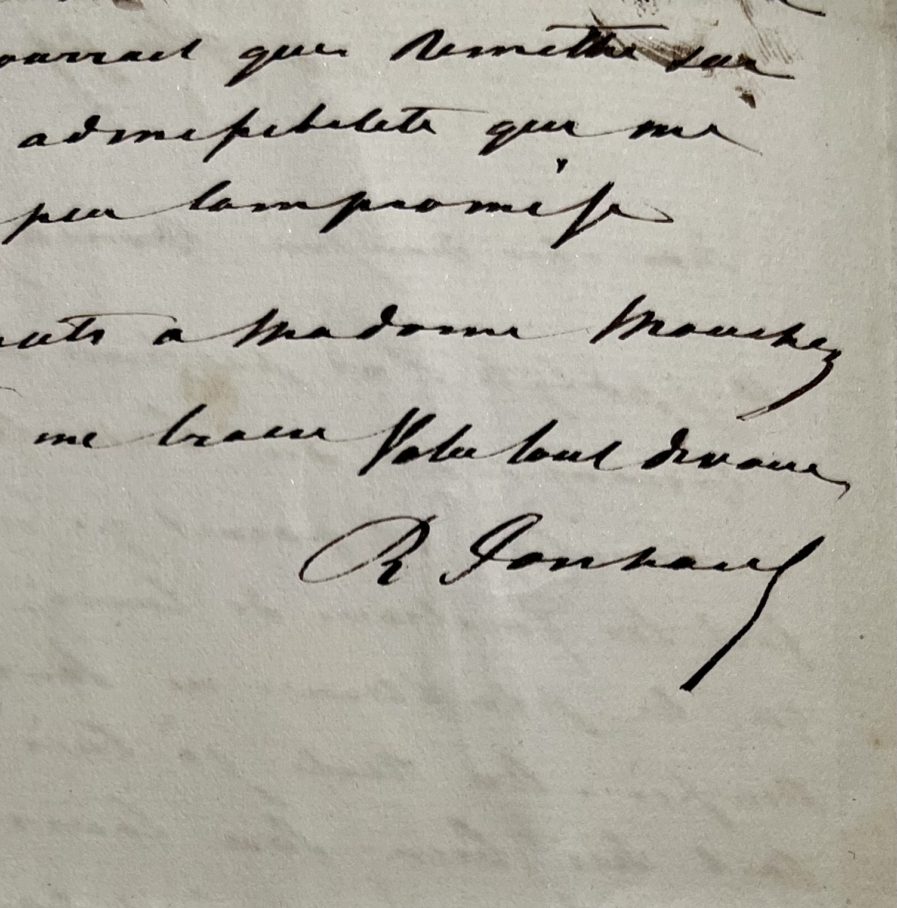 ourrait que remettre sur
admissibilité qui me
peu compromise
à Madame Mouchez
me croire Votre tout dévoué
R